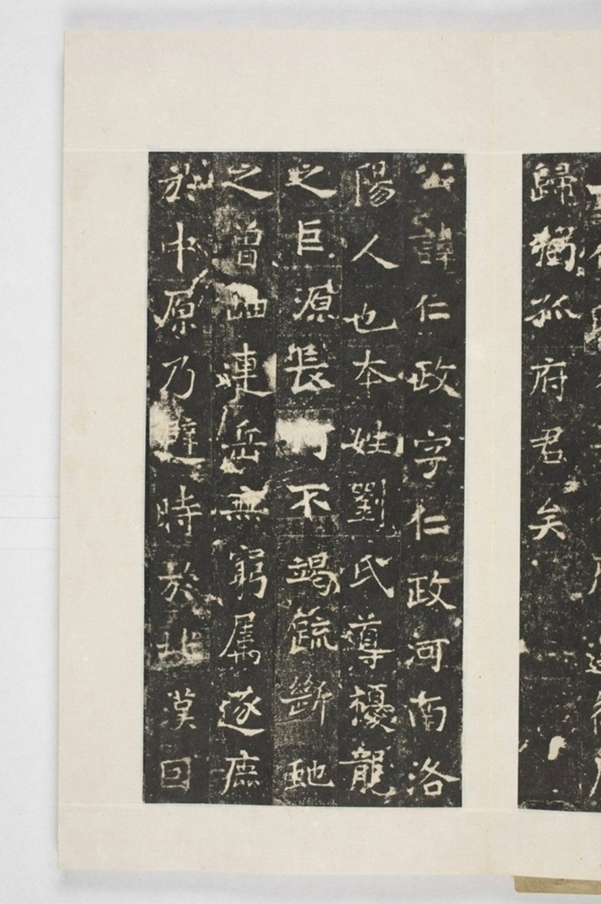 歸獨孤府君矣
公諱仁政字仁政河南洛
陽人也本姓劉氏導擾龍
之巨源長河不竭疏斷虵
之曾岫連岳無窮属逐鹿
於中原乃避時於北漠因